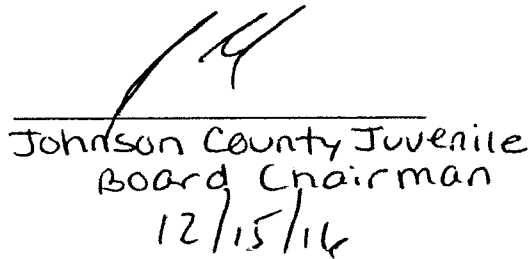 Johnson County Juvenile
Board Chairman
12/15/16